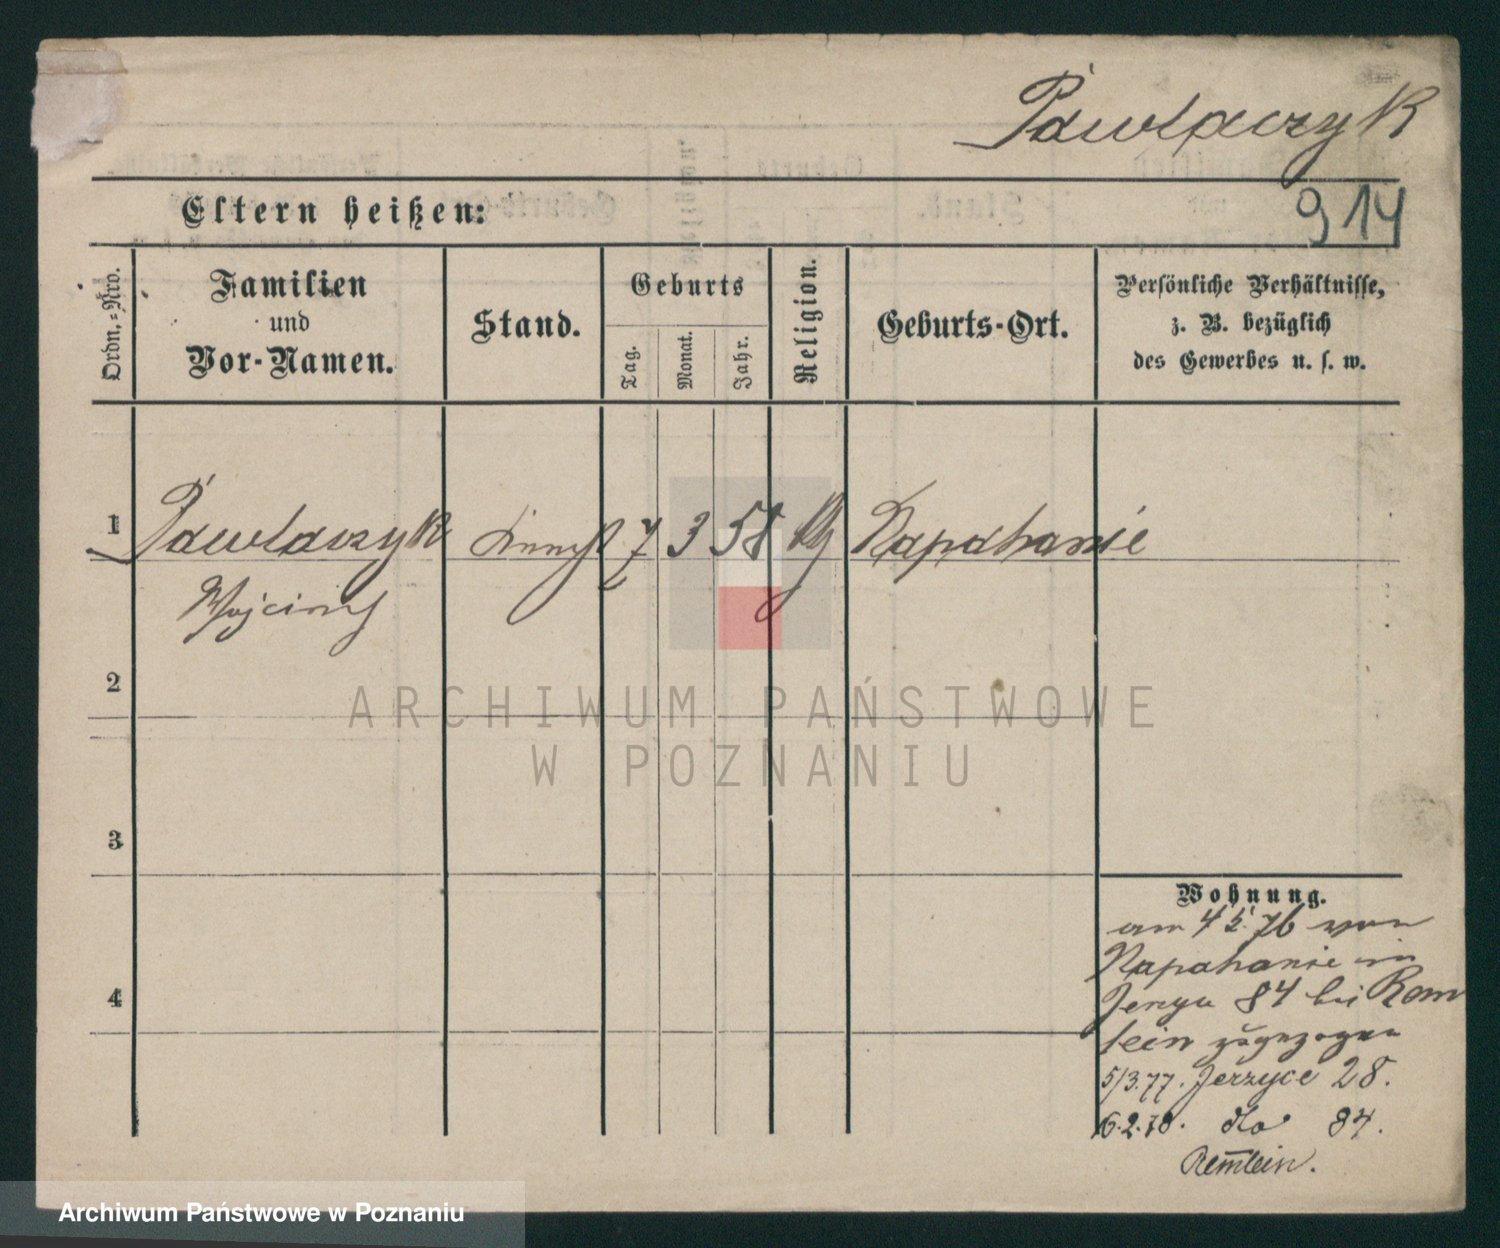 Pawlaczyk
914
Eltern heißen:
Ordn.-Nro.
Familien
und
Vor-Namen.
Stand.
Geburts
Tag.
Monat.
Jahr.
Religion.
Geburts-Ort.
Persönliche Verhältnisse,
z. B. bezüglich
des Gewerbes u. s. w.
1
Pawlaczyk
7 3 58
Napachanie
2
ARCHIWUM PAŃSTWOWE
W POZNANIU
3
Wohnung.
am 4 5. 76 von
Napachanie in
84 bei Rem
lein
4
5/3.77. Jerzyce 28.
6.2.78. dto 84.
Remlein.
Archiwum Państwowe w Poznaniu